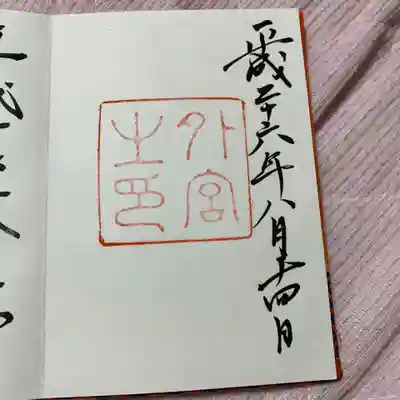 平成二十六年八月十四日
外宮
之印